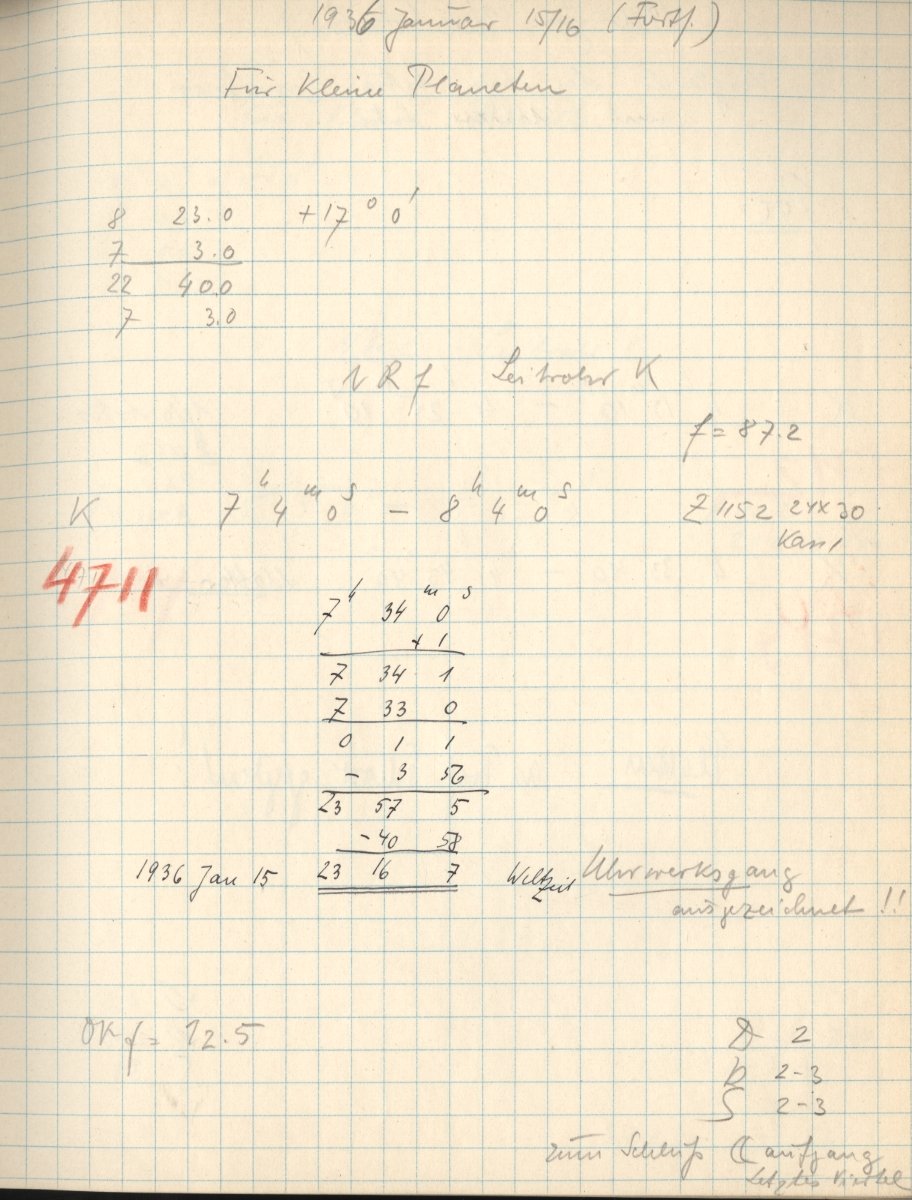 1936 Januar 15/16 (Forts.)
Für Kleine Planeten
8 23.0 +17° 0'
7 3.0
22 40.0
7 3.0
Leitrohr K
f = 87.2
K 7h 4m 0s – 8h 4m 0s Z 1152 24x30
4711
7h 34m 0s
+ 1
7 34 1
7 33 0
0 1 1
– 3 56
23 57 5
– 40 58
1936 Jan 15 23 16 7 Weltzeit Uhrwerksgang
ausgezeichnet !!
OK f = 12.5
2
2-3
2-3
zum Schluß ☾ aufgang
Letztes Viertel